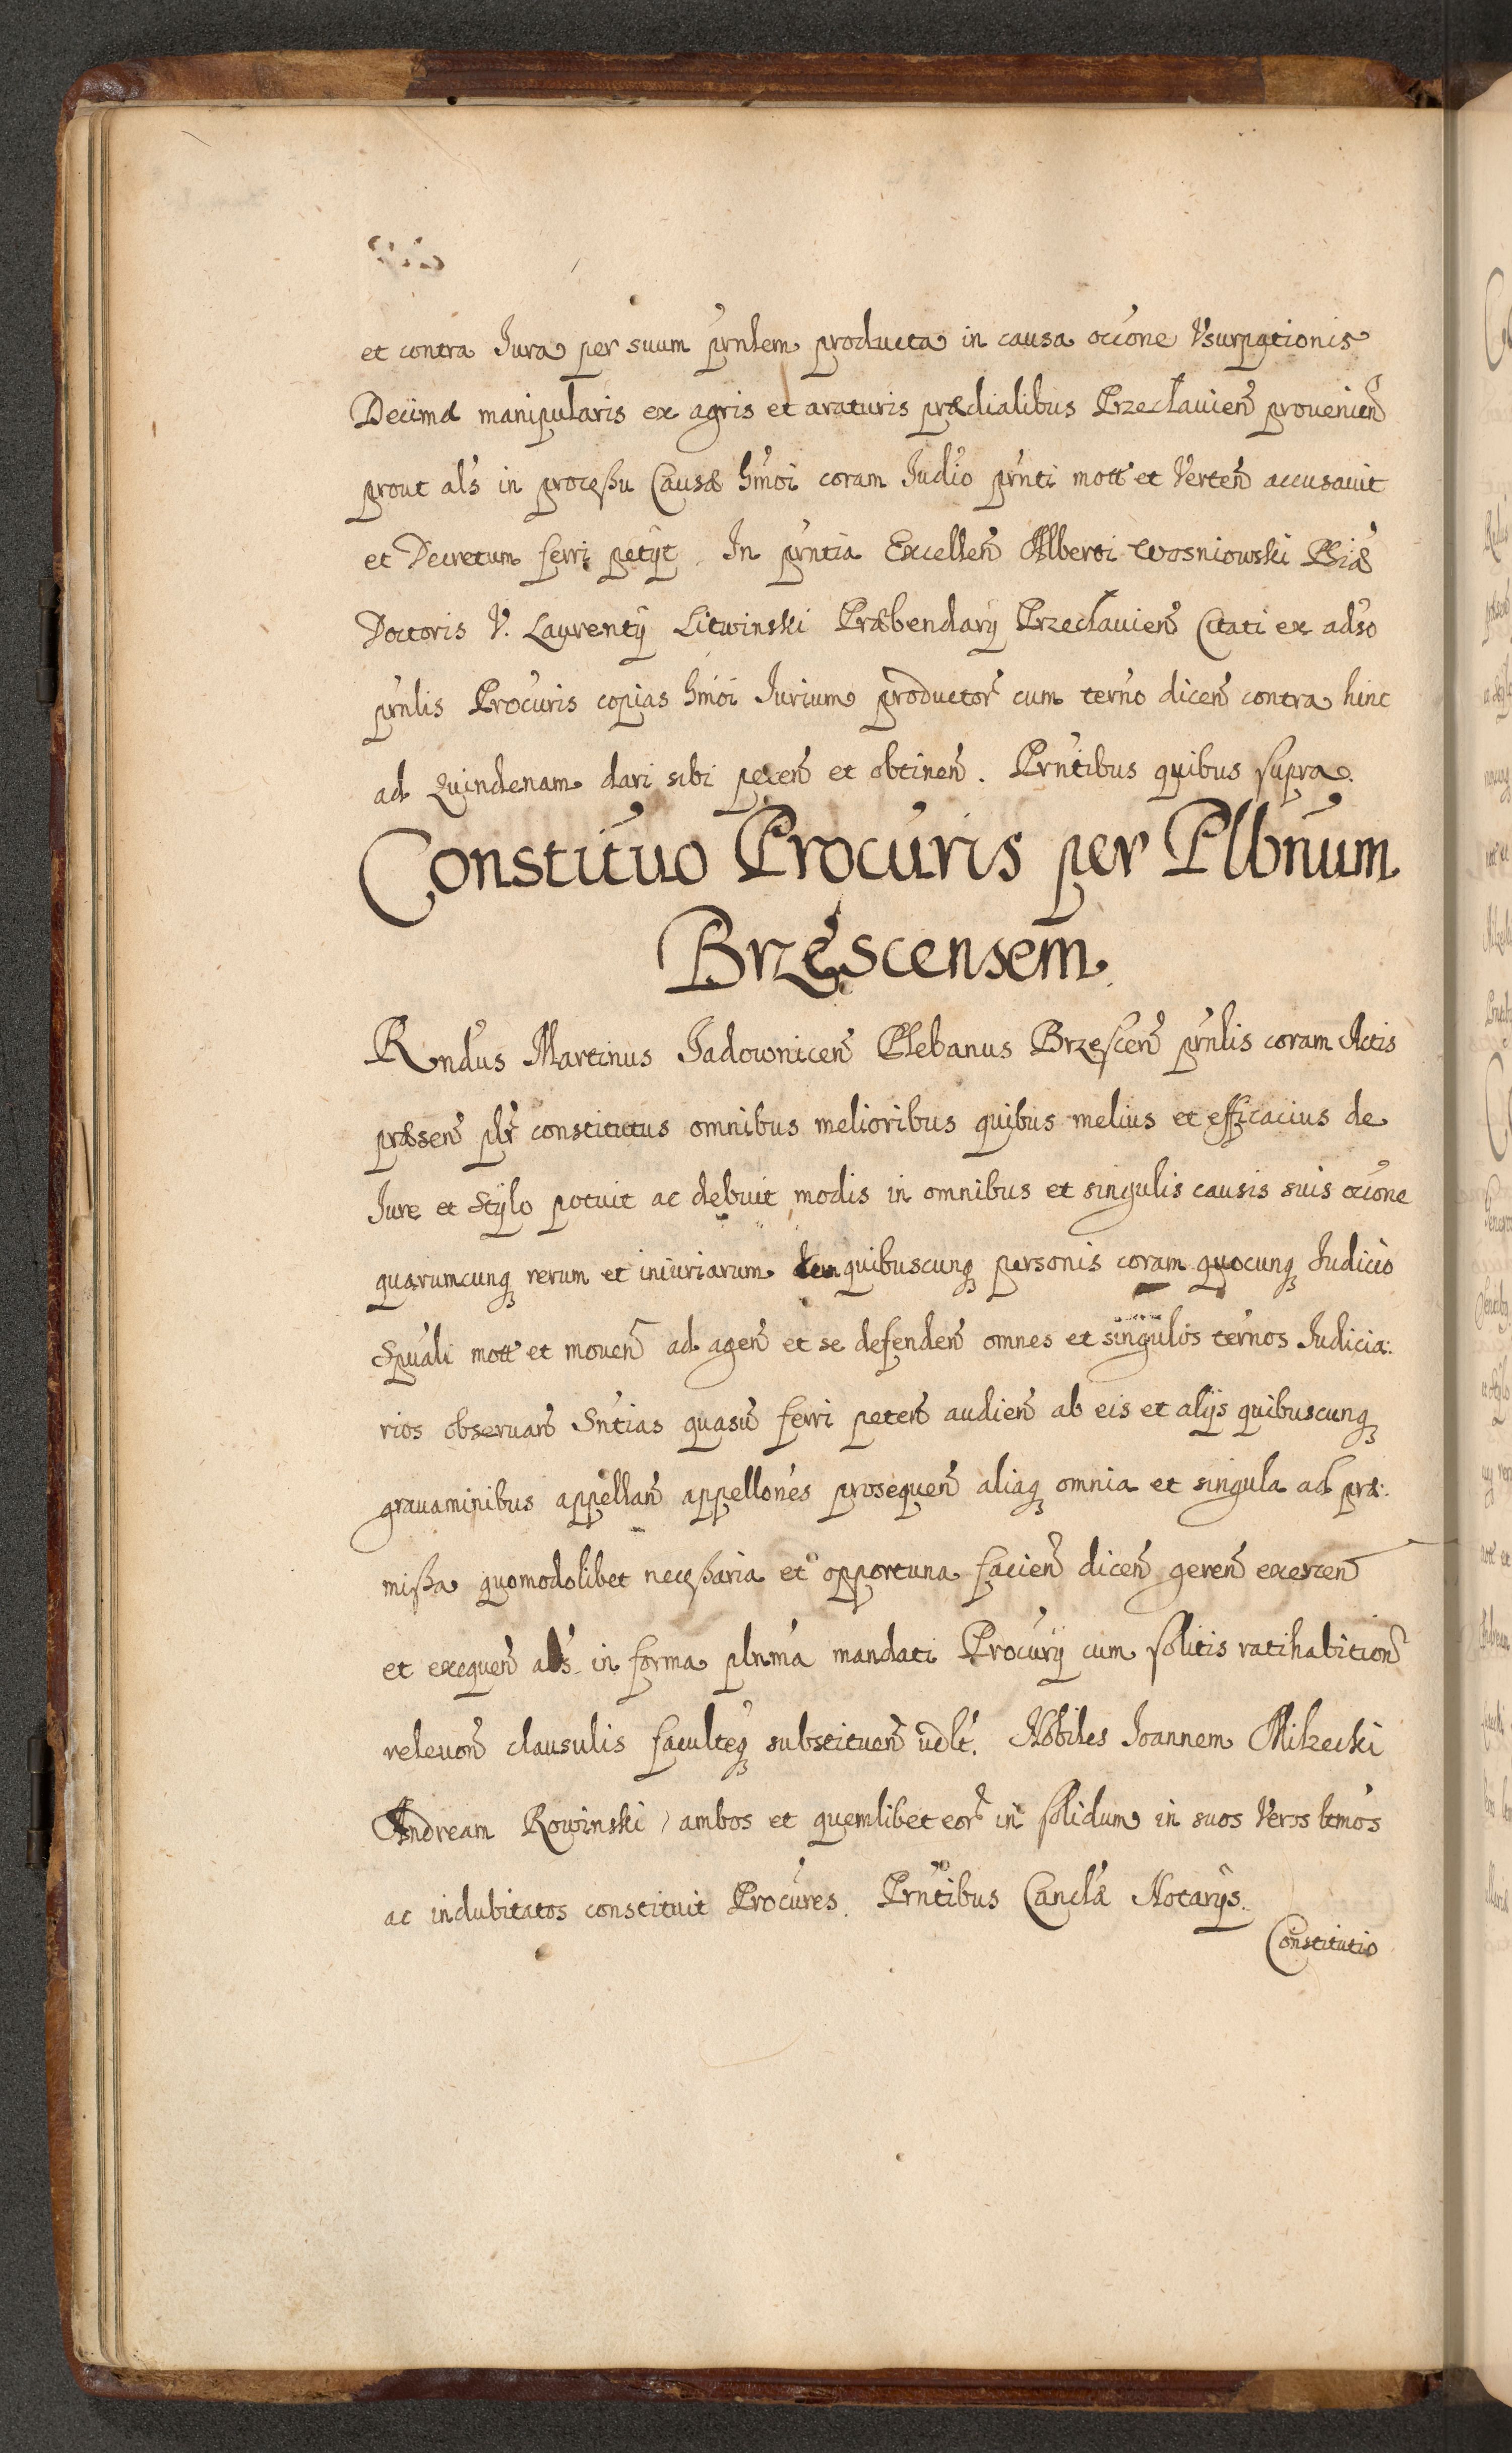 et contra Jura per suum prńlem producta in causa occone Vsurpationis
Decimæ manipularis ex agris et araturis prædialibus Przecłauień prouenień
prout als in processu Causæ hmoi coram Judio prńti mott et Verteń accusauit
et Decretum ferri petijt. In prńtia Excelleń Alberti Wosniowski Phiæ
Doctoris V. Laurentij Litwinski Præbendarij Przecłauień Citati ex adso
prńlis Procuris copias hmoi Jurium productor cum terno diceń contra hinc
ad Quindenam dari sibi peteń et obtineń. Prńtibus quibus supra.
Constituo Procuris per Plbnum
Brzescensem.
Rndus Martinus Jadowniceń Plebanus Brzesceń prńlis coram Actis
præseń plr constitutus omnibus melioribus quibus melius et efficacius de
Jure et Stylo potuit ac debuit modis in omnibus et singulis causis suis occone
quarumcunq rerum et iniuriarum cum quibuscunq personis coram quocunq Judicio
Spuali mott et moueń ad ageń et se defendeń omnes et singulos ternos Judicia:
rios obseruań Sntias quasuis ferri peteń audień ab eis et alijs quibuscunq
grauaminibus appellań appellones prosequeń aliaq omnia et singula ad præ:
missa quomodolibet necessaria et opportuna facień diceń gereń exerceń
et exequeń als in forma plnma mandati Procurij cum solitis ratihabition
releuoń clausulis faculteq substitueń vdlt. Nobiles Joannem Milzecki
Andream Rowinski ambos et quemlibet eor in solidum in suos Veros ltmos
ac indubitatos constituit Procures. Prńtibus Canclæ Notarijs.
Constitutio